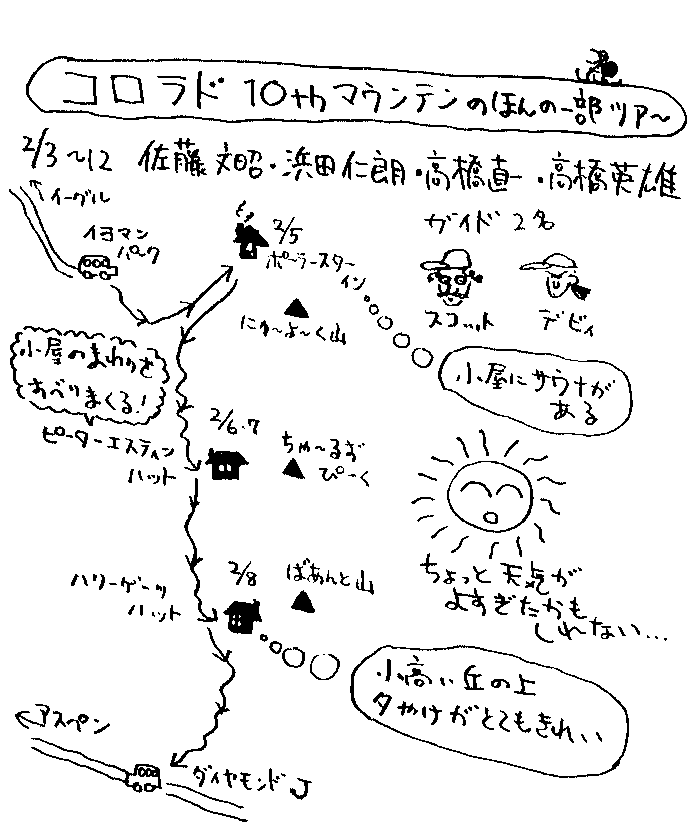 コロラド 10thマウンテンのほんの一部ツアー
2/3~12 佐藤文昭・浜田仁朗・高橋直一・高橋英雄
イーグル
イヨマン
パーク
2/5
ポーラースター
イン
ガイド 2名
スコット
デビィ
にゅ〜よ〜く山
小屋にサウナが
ある
小屋のまわりを
すべりまくる!
ピーターエスティン
ハット
2/6.7
ちゃ〜るず
ぴーく
ちょっと天気が
よすぎたかも
しれない...
ハリーゲーツ
ハット
2/8
ばあんと山
小高い丘の上
夕やけがとてもきれい
アスペン
ダイヤモンドJ